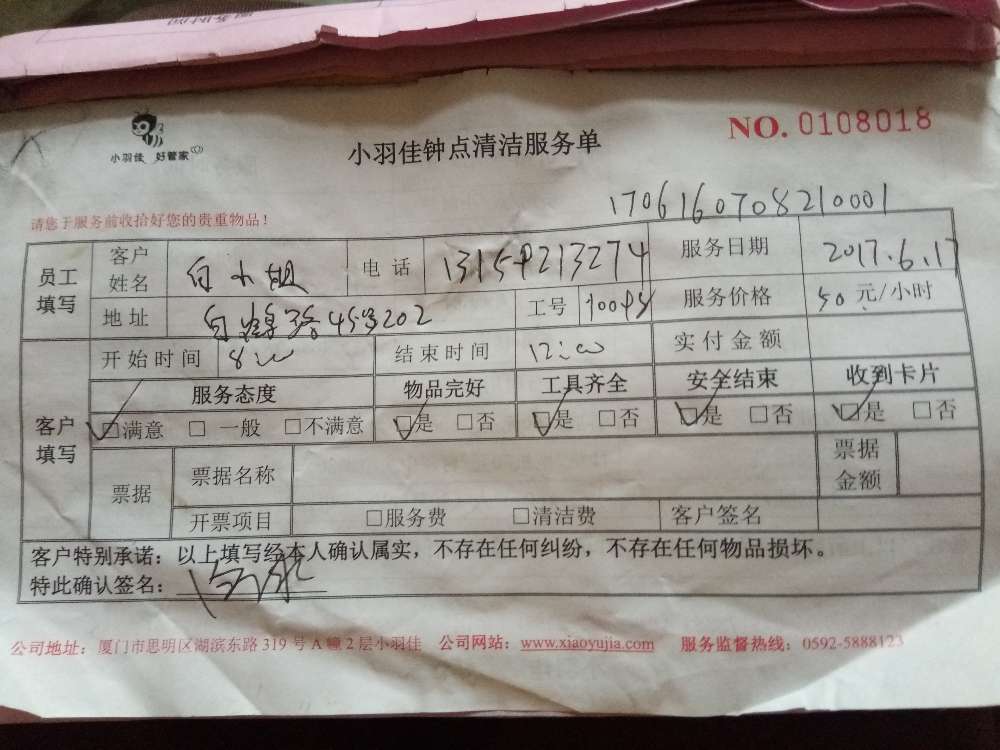 小羽佳 好管家
小羽佳钟点清洁服务单
NO. 0108018
1706160708210001
请您于服务前收拾好您的贵重物品！
员工填写 客户姓名 白小姐 电话 服务日期 2017.6.17
地址 45号202 工号 服务价格 50 元/小时
客户填写 开始时间 8:00 结束时间 12:00 实付金额
服务态度 物品完好 工具齐全 安全结束 收到卡片
☑满意 □一般 □不满意 ☑是 □否 ☑是 □否 ☑是 □否 ☑是 □否
票据 票据名称 票据金额
开票项目 □服务费 □清洁费 客户签名
客户特别承诺：以上填写经本人确认属实，不存在任何纠纷，不存在任何物品损坏。
特此确认签名：
公司地址：厦门市思明区湖滨东路 319 号 A 幢 2 层小羽佳 公司网站：www.xiaoyujia.com 服务监督热线：0592-5888123